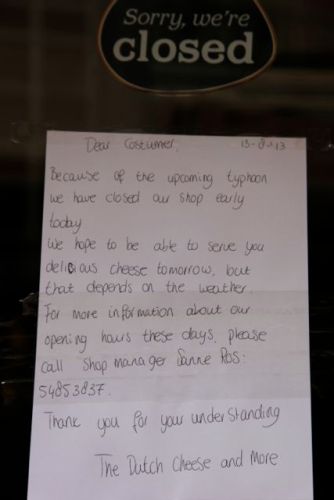 Sorry, we're
closed
Dear Costumer, 13-8-13
Because of the upcoming typhoon
we have closed our shop early
today
We hope to be able to serve you
delicious cheese tomorrow, but
that depends on the weather.
For more information about our
opening hours these days, please
call shop manager Sanne Ros:
54853837.
Thank you for your understanding
The Dutch Cheese and More